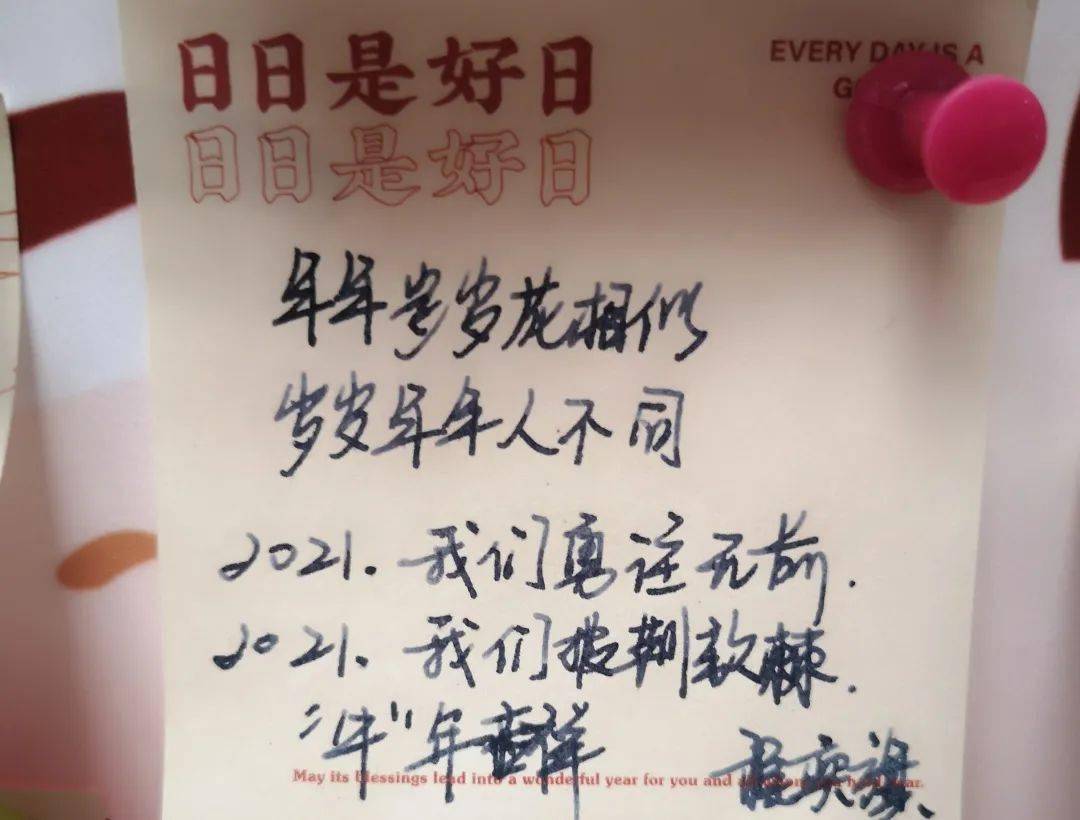 日日是好日
日日是好日
EVERY DAY IS A
G
年年岁岁花相似
岁岁年年人不同
2021.我们勇往无前.
2021.我们披荆斩棘.
"牛"年吉祥
May its blessings lead into a wonderful year for you and